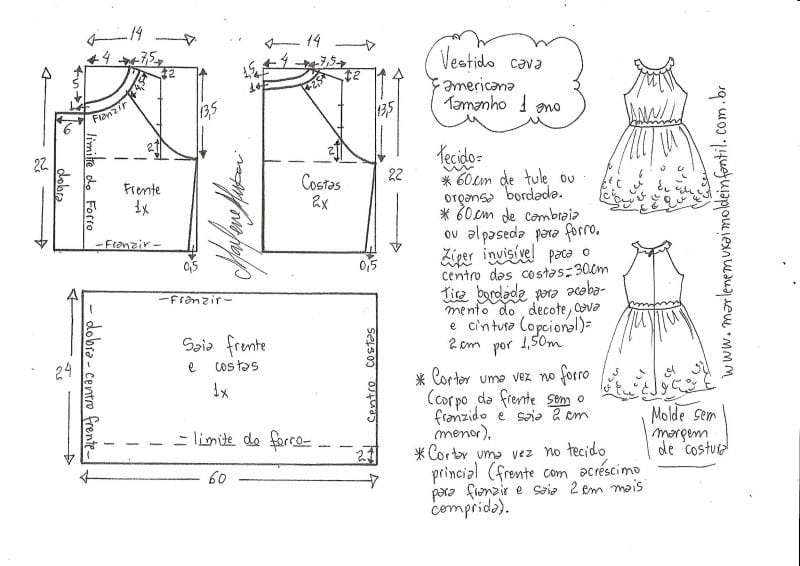 14
4 7,5
2
5
1
4,5
Franzir
6
13,5
22
2
dobra
limite do Forro
Frente
1x
-Franzir-
0,5
Marlene Mukai
14
1,5
4 7,5
2
1
2,5
13,5
2
22
Costas
2x
0,5
Vestido cava
americana
Tamanho 1 ano
Tecido=
* 60cm de tule ou
organsa bordada.
* 60cm de cambraia
ou alpaseda para forro.
Zíper invisível para o
centro das costas=30cm
Tira bordada para acaba-
mento do decote, cava
e cintura (opcional)=
2cm por 1,50m
* Cortar uma vez no forro
(corpo da frente sem o
franzido e saia 2cm
menor).
* Cortar uma vez no tecido
princial (frente com acréscimo
para franzir e saia 2cm mais
comprida).
www.marlenemukaimoldeinfantil.com.br
Molde sem
margem
de costura
-Franzir-
24
- dobra - centro frente -
Saia frente
e costas
1x
centro costas
- limite do forro -
2
60